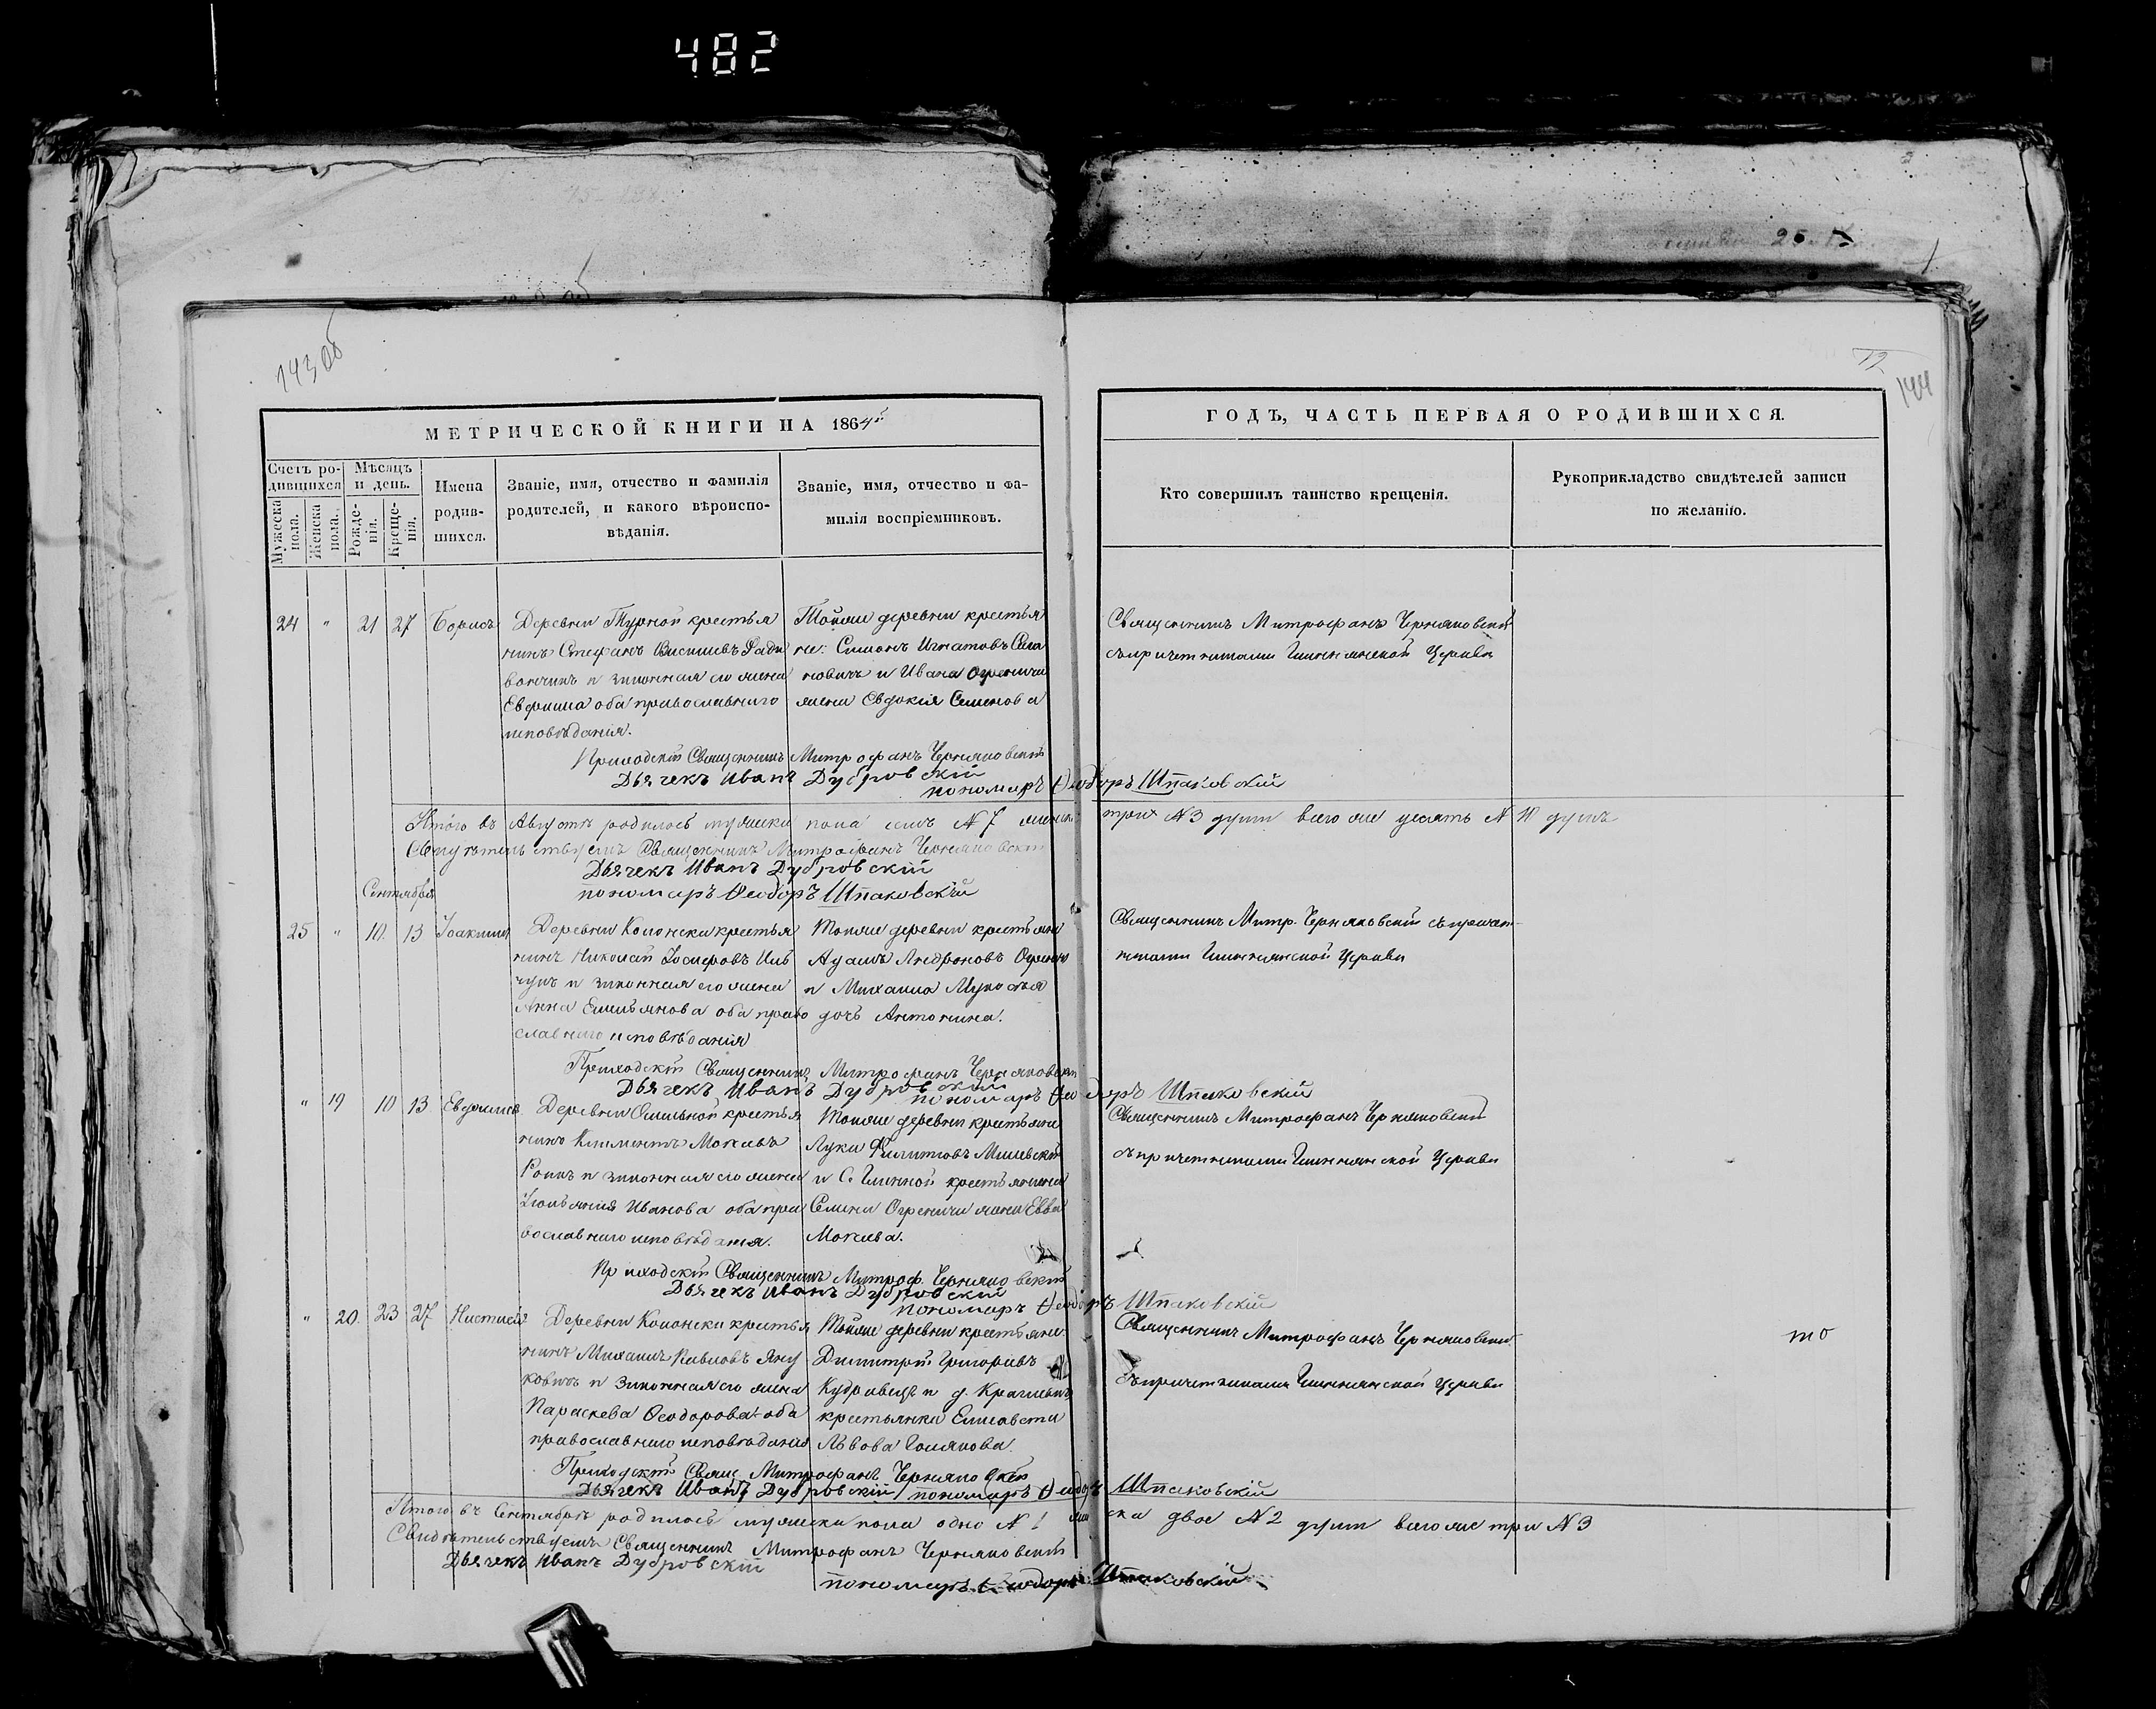 482
143 об
12
144
МЕТРИЧЕСКОЙ КНИГИ НА 1864й
ГОДЪ, ЧАСТЬ ПЕРВАЯ О РОДИВШИХСЯ.
Счетъ ро-
дившихся
Мужеска
пола.
Женска
пола.
Мѣсяцъ
и день.
Рожде-
нія.
Креще-
нія.
Имена
родив-
шихся.
Званіе, имя, отчество и фамилія
родителей, и какого вѣроиспо-
вѣданія.
Званіе, имя, отчество и фа-
милія воспріемниковъ.
Кто совершилъ таинство крещенія.
Рукоприкладство свидѣтелей записи
по желанію.
24 " 21 27 Борисъ
Деревни Турной крестья
нинъ Стефанъ
и законная его жена
Евфимиа оба православнаго
исповѣданія.
Тойже деревни крестья
не: Симонъ Игнатовъ
и Ивана
жена Евдокія Семенова
Священникъ Митрофанъ Черняковскій
съ причетниками Глиннянской Церкви
Приходскій Священникъ Митрофанъ Черняковскій
Дьячекъ Иванъ Дубровскій
пономаръ Ѳеодоръ Шпаковскій
Итого въ Августѣ родилось мужеска пола семь N 7 женска три N 3 душъ всего же десять N 10 душъ
Свидѣтельствуемъ Священникъ Митрофанъ Черняковскій
Дьячекъ Иванъ Дубровскій
пономаръ Ѳеодоръ Шпаковскій
Сентября
25 " 10 13 Іоакимъ
Деревни Колонска крестья
нинъ Николай Іосифовъ
и законная его жена
Анна Емильянова оба право
славнаго исповѣданія
Тойже деревни крестьяне
Адамъ Андроновъ
и Михаила
дочь Антонина.
Священникъ Митр. Черняковскій съ причет-
никами Глиннянской Церкви
Приходскій Священникъ Митрофанъ Черняковскій
Дьячекъ Иванъ Дубровскій
пономаръ Ѳеодоръ Шпаковскій
" 19 10 13 Евфимія
Деревни крестья
нинъ Климентъ Мокіевъ
и законная его жена
Іуліанія Иванова оба пра
вославнаго исповѣданія.
Тойже деревни крестьянинъ
Лука Филиповъ
и С. Глинной крестьянина
Семена жена Евва
Мокиева.
Священникъ Митрофанъ Черняковскій
съ причетниками Глиннянской Церкви
Приходскій Священникъ Митроф. Черняковскій
Дьячекъ Иванъ Дубровскій
пономаръ Ѳеодоръ Шпаковскій
" 20. 23 27
Деревни Колонска крестья
нинъ Михаилъ Павловъ Яну
ковичъ и законная его жена
Параскева Ѳеодорова оба
православнаго исповѣданія
Тойже деревни крестьянинъ
Димитрій Григоріевъ
и д.
крестьянка Елисавета
Львова
Священникъ Митрофанъ Черняковскій
съ причетниками Глиннянской Церкви
Приходскій Свящ. Митрофанъ Черняковскій
Дьячекъ Иванъ Дубровскій пономаръ Ѳеодоръ Шпаковскій
Итого въ Сентябрѣ родилось мужеска пола одно N 1 женска двое N 2 душъ всего же три N 3
Свидѣтельствуемъ Священникъ Митрофанъ Черняковскій
Дьячекъ Иванъ Дубровскій
пономаръ Ѳеодоръ Шпаковскій